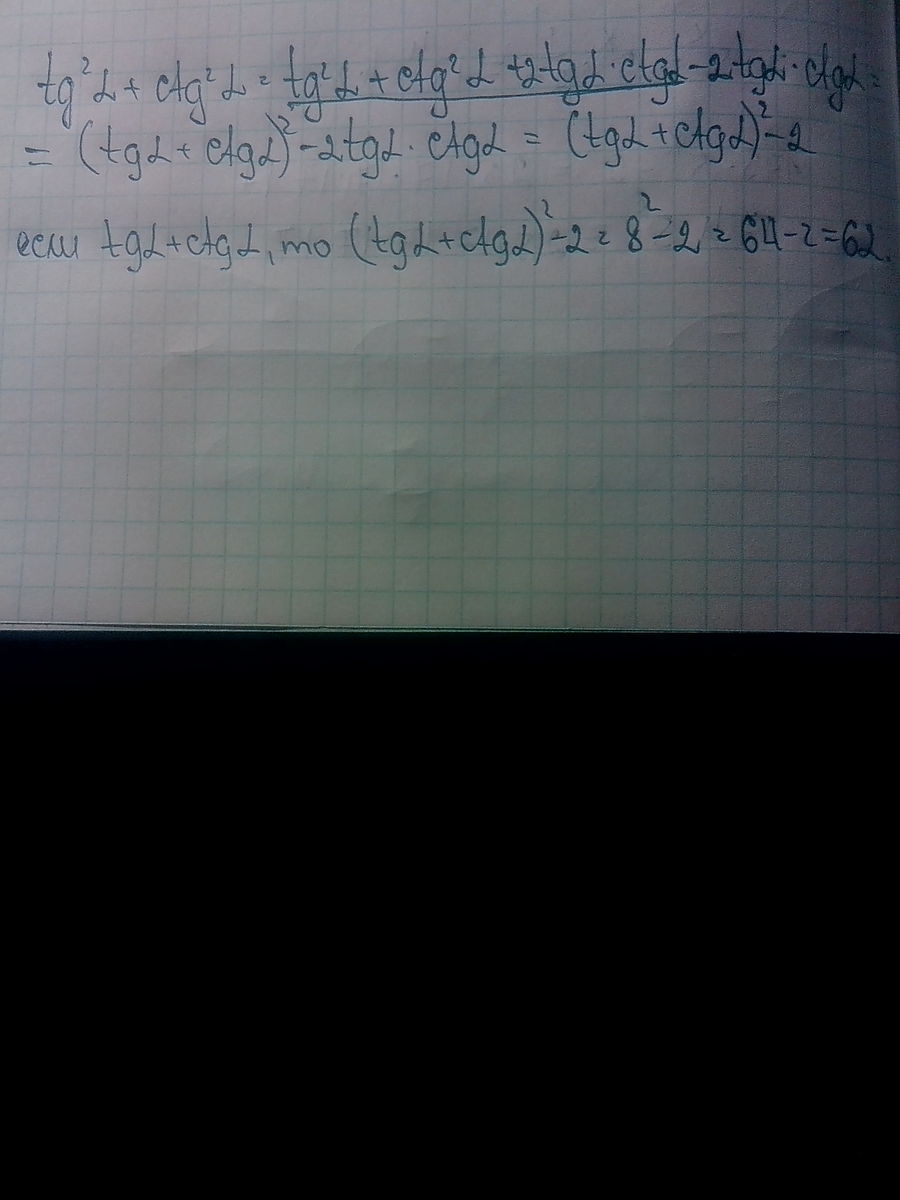 tg²α + ctg²α = tg²α + ctg²α + 2tgα · ctgα - 2tgα · ctgα =
= (tgα + ctgα)² - 2tgα · ctgα = (tgα + ctgα)² - 2
если tgα + ctgα, то (tgα + ctgα)² - 2 = 8² - 2 = 64 - 2 = 62.